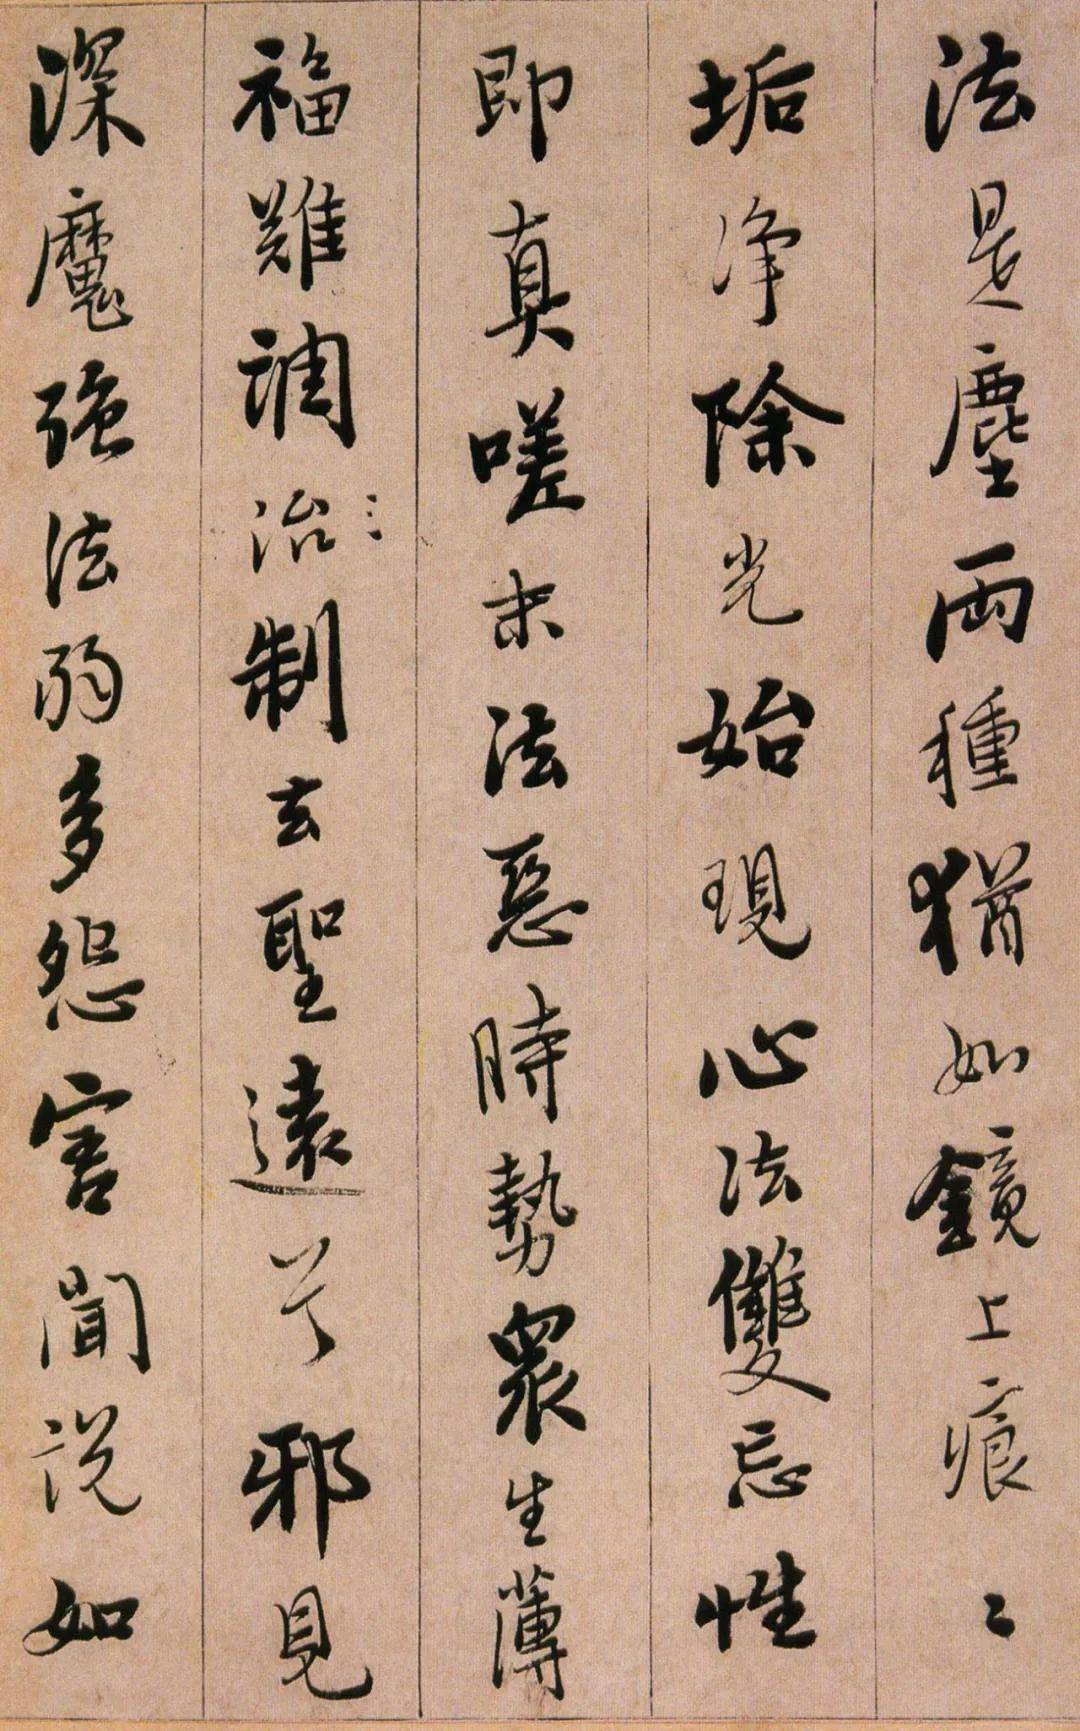 法是塵兩種猶如鏡上痕〻
垢淨除光始現心法雙忘性
即真嗟末法惡時勢衆生薄
福難調治〻制去聖遠兮邪見
深魔強法弱多怨害聞說如